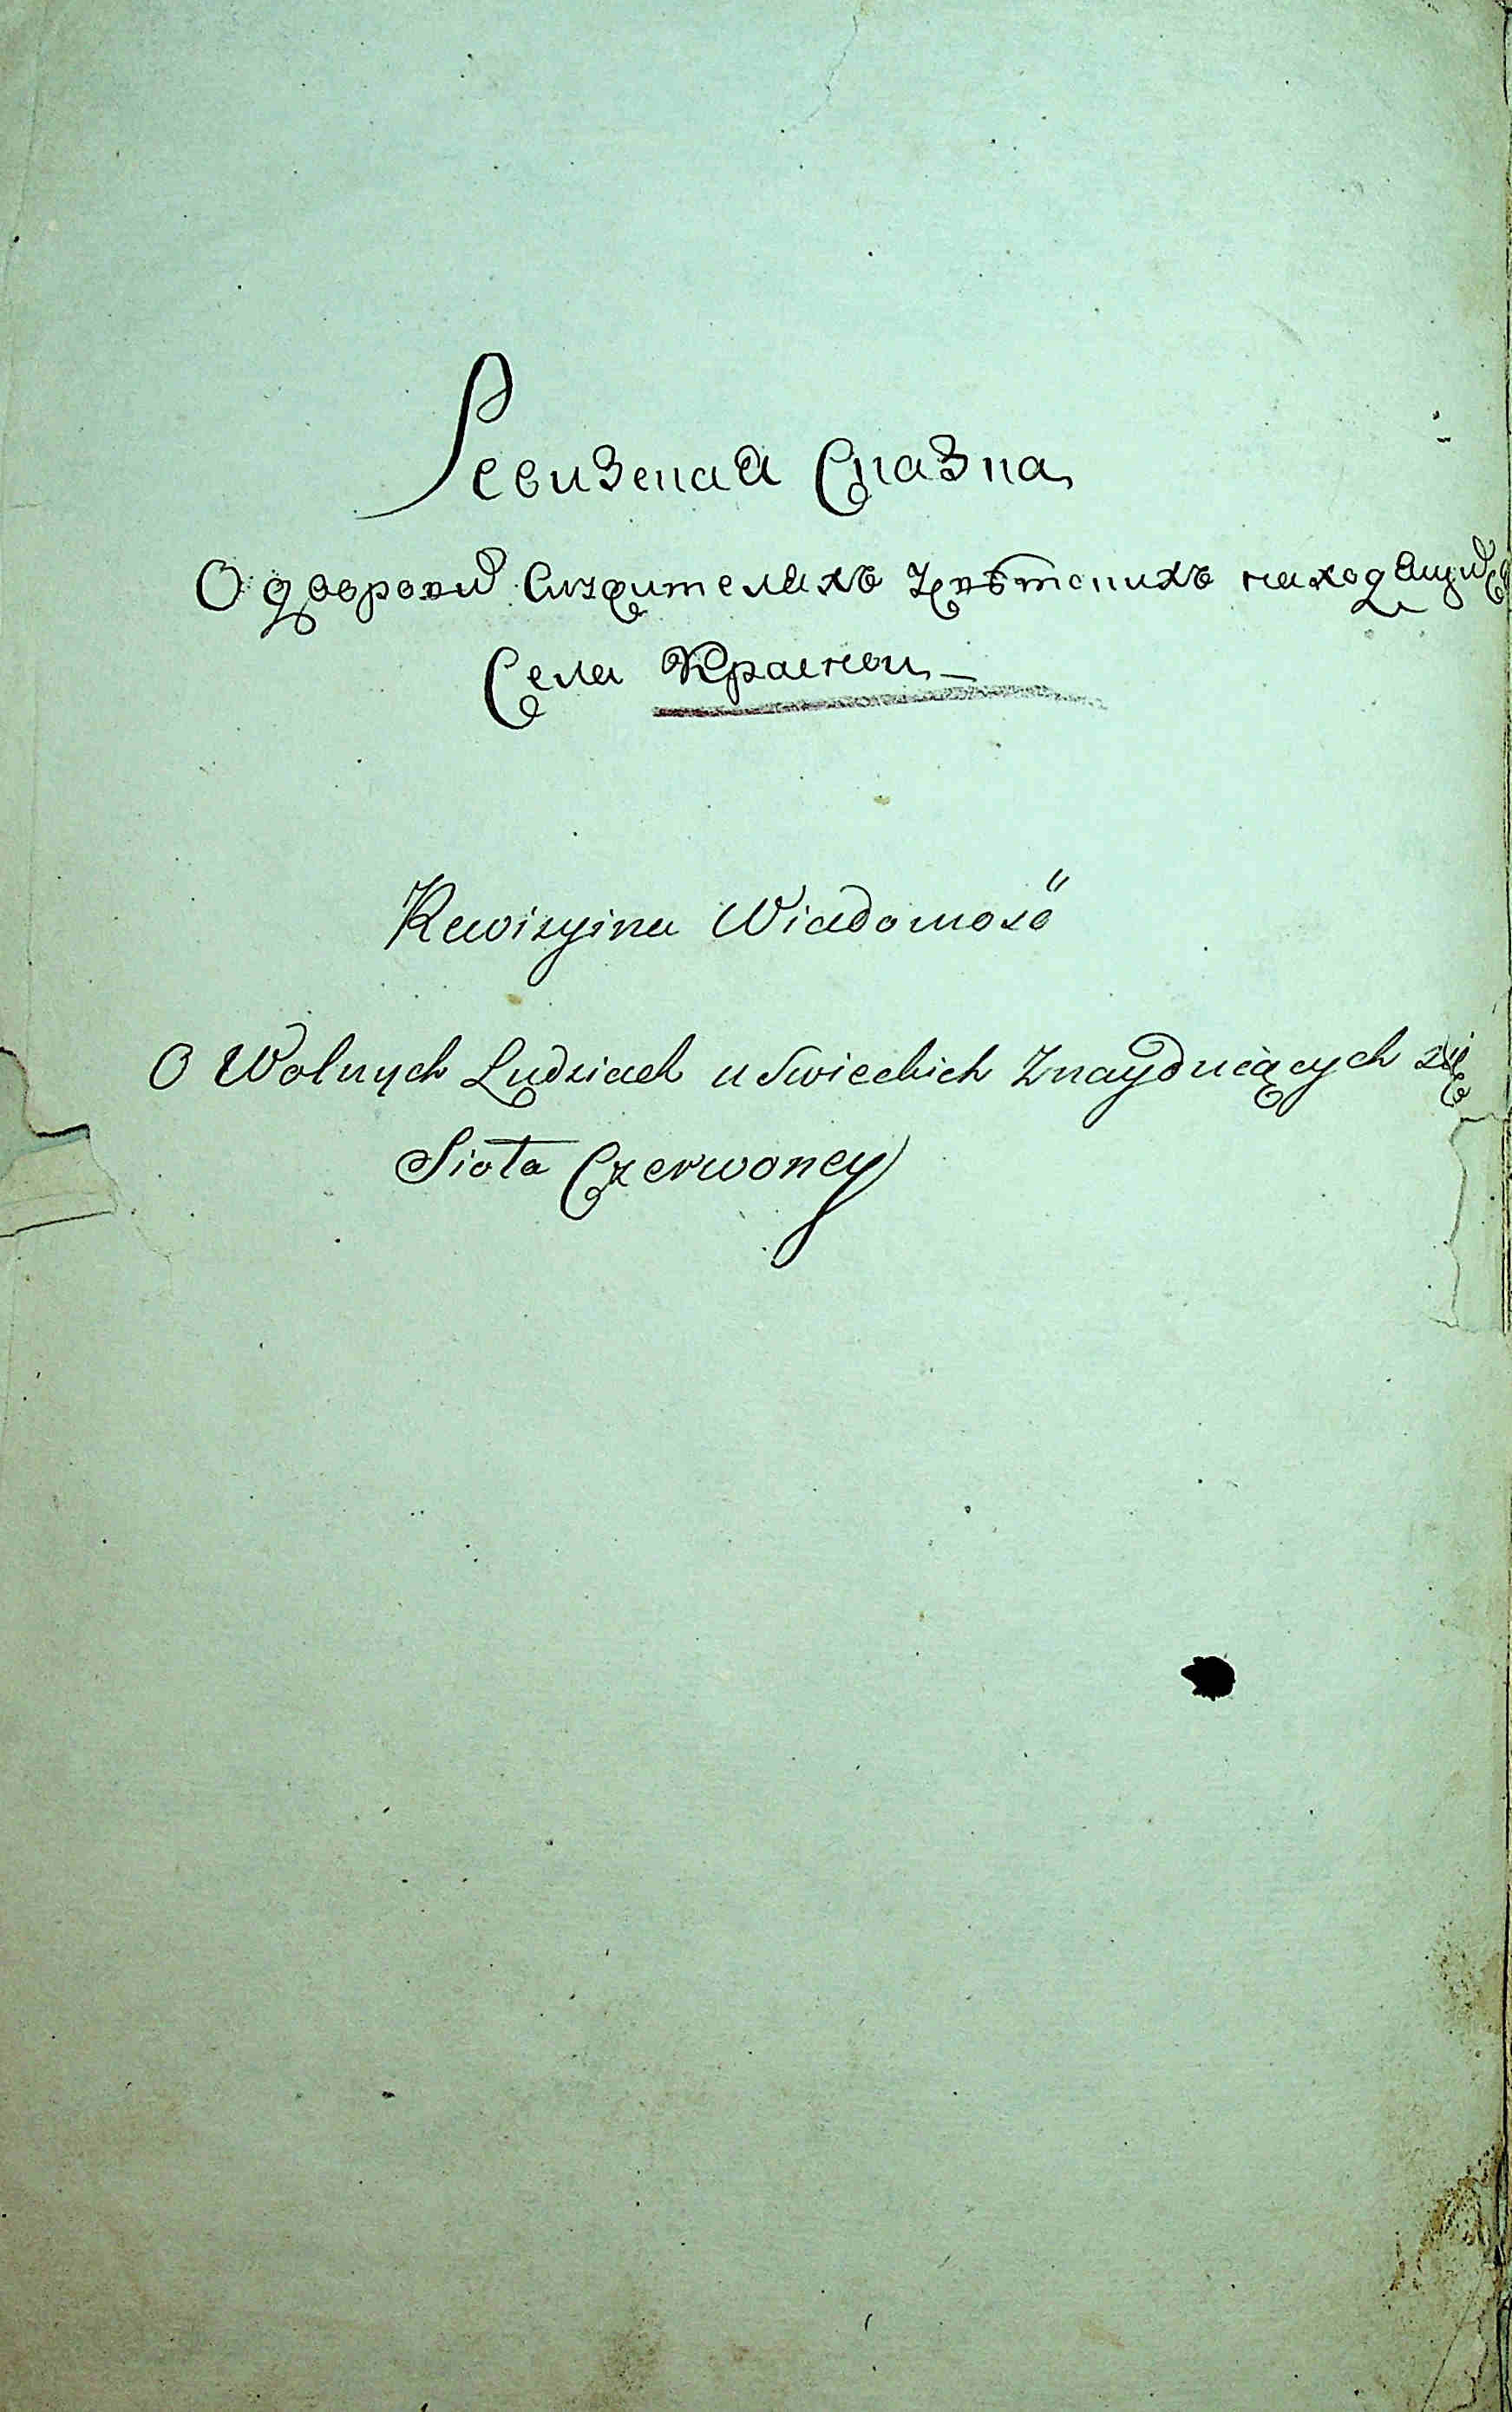 Ревизеная Сказка
О дворови Служителахъ Цвѣтскихъ находящи
Села Красной
Rewizyina Wiadomość
O Wolnych Ludziach u Swieckich Znayduiących się
Sioła Czerwoney